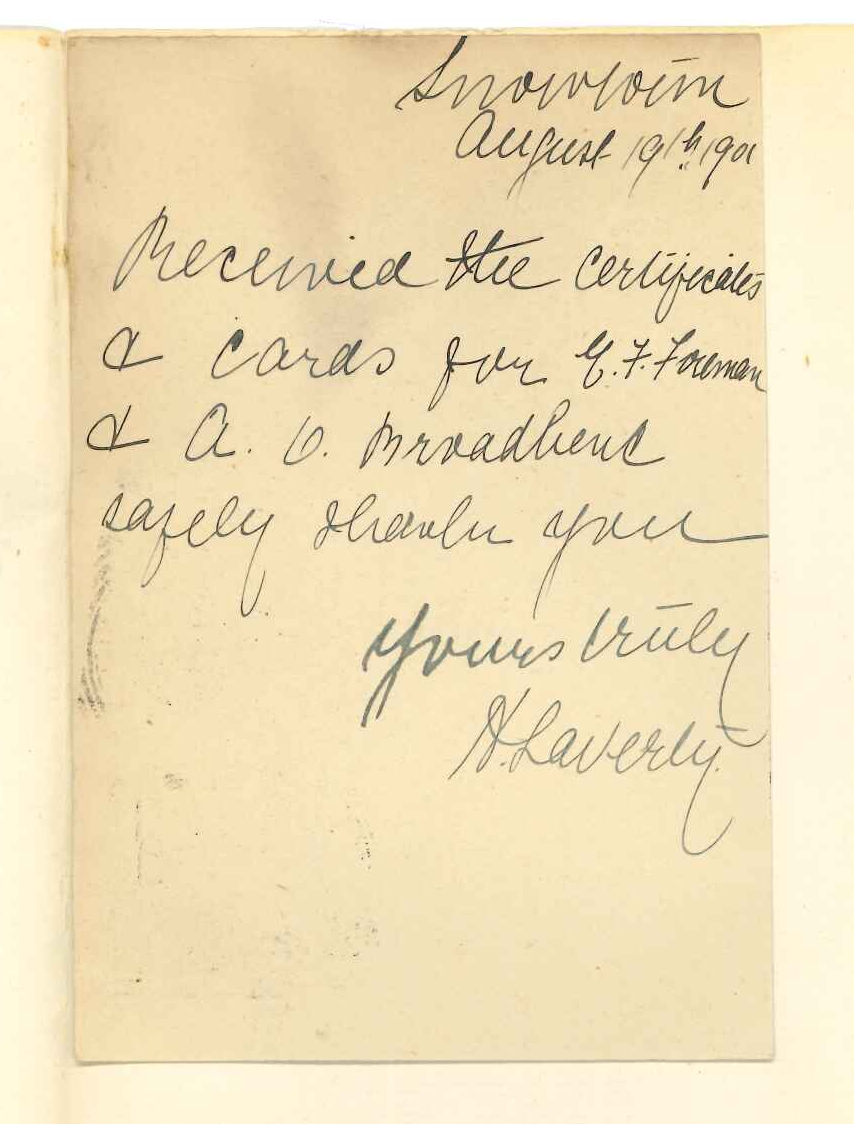 August 19th 1901
Received the certificates
& cards for E. F. Foreman
& A. O. Broadbent
safely thank you
Yours truly
H. Laverty.